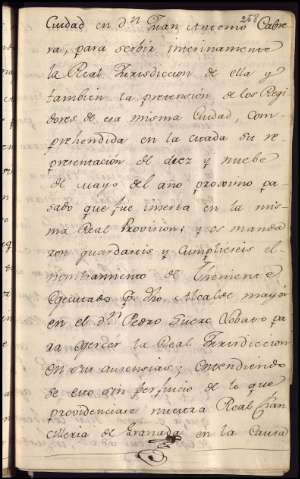 268
Ciudad en Dn. Juan Antonio Cabre
ra, para servir interinamente
la Real Jurisdiccion de ella y
tambien la pretension de los Regi
dores de esa misma Ciudad, com
prehendida en la citada su re
presentacion del diez y nuebe
de Mayo del año proximo pa
sado que fue inserta en la mis
ma Real Provision; y os manda
ron guardaseis y cumplieseis el
nombramiento de Theniente
Egecutado pr. dho Alcalde mayor
en el Dn. Pedro Suero Cobato pa
ra egercer la Real Jurisdiccion
en sus ausencias; entendiendo
se esto sin perjuicio de lo que
providenciare nuestra Real Chan
cilleria de Granada en la Causa